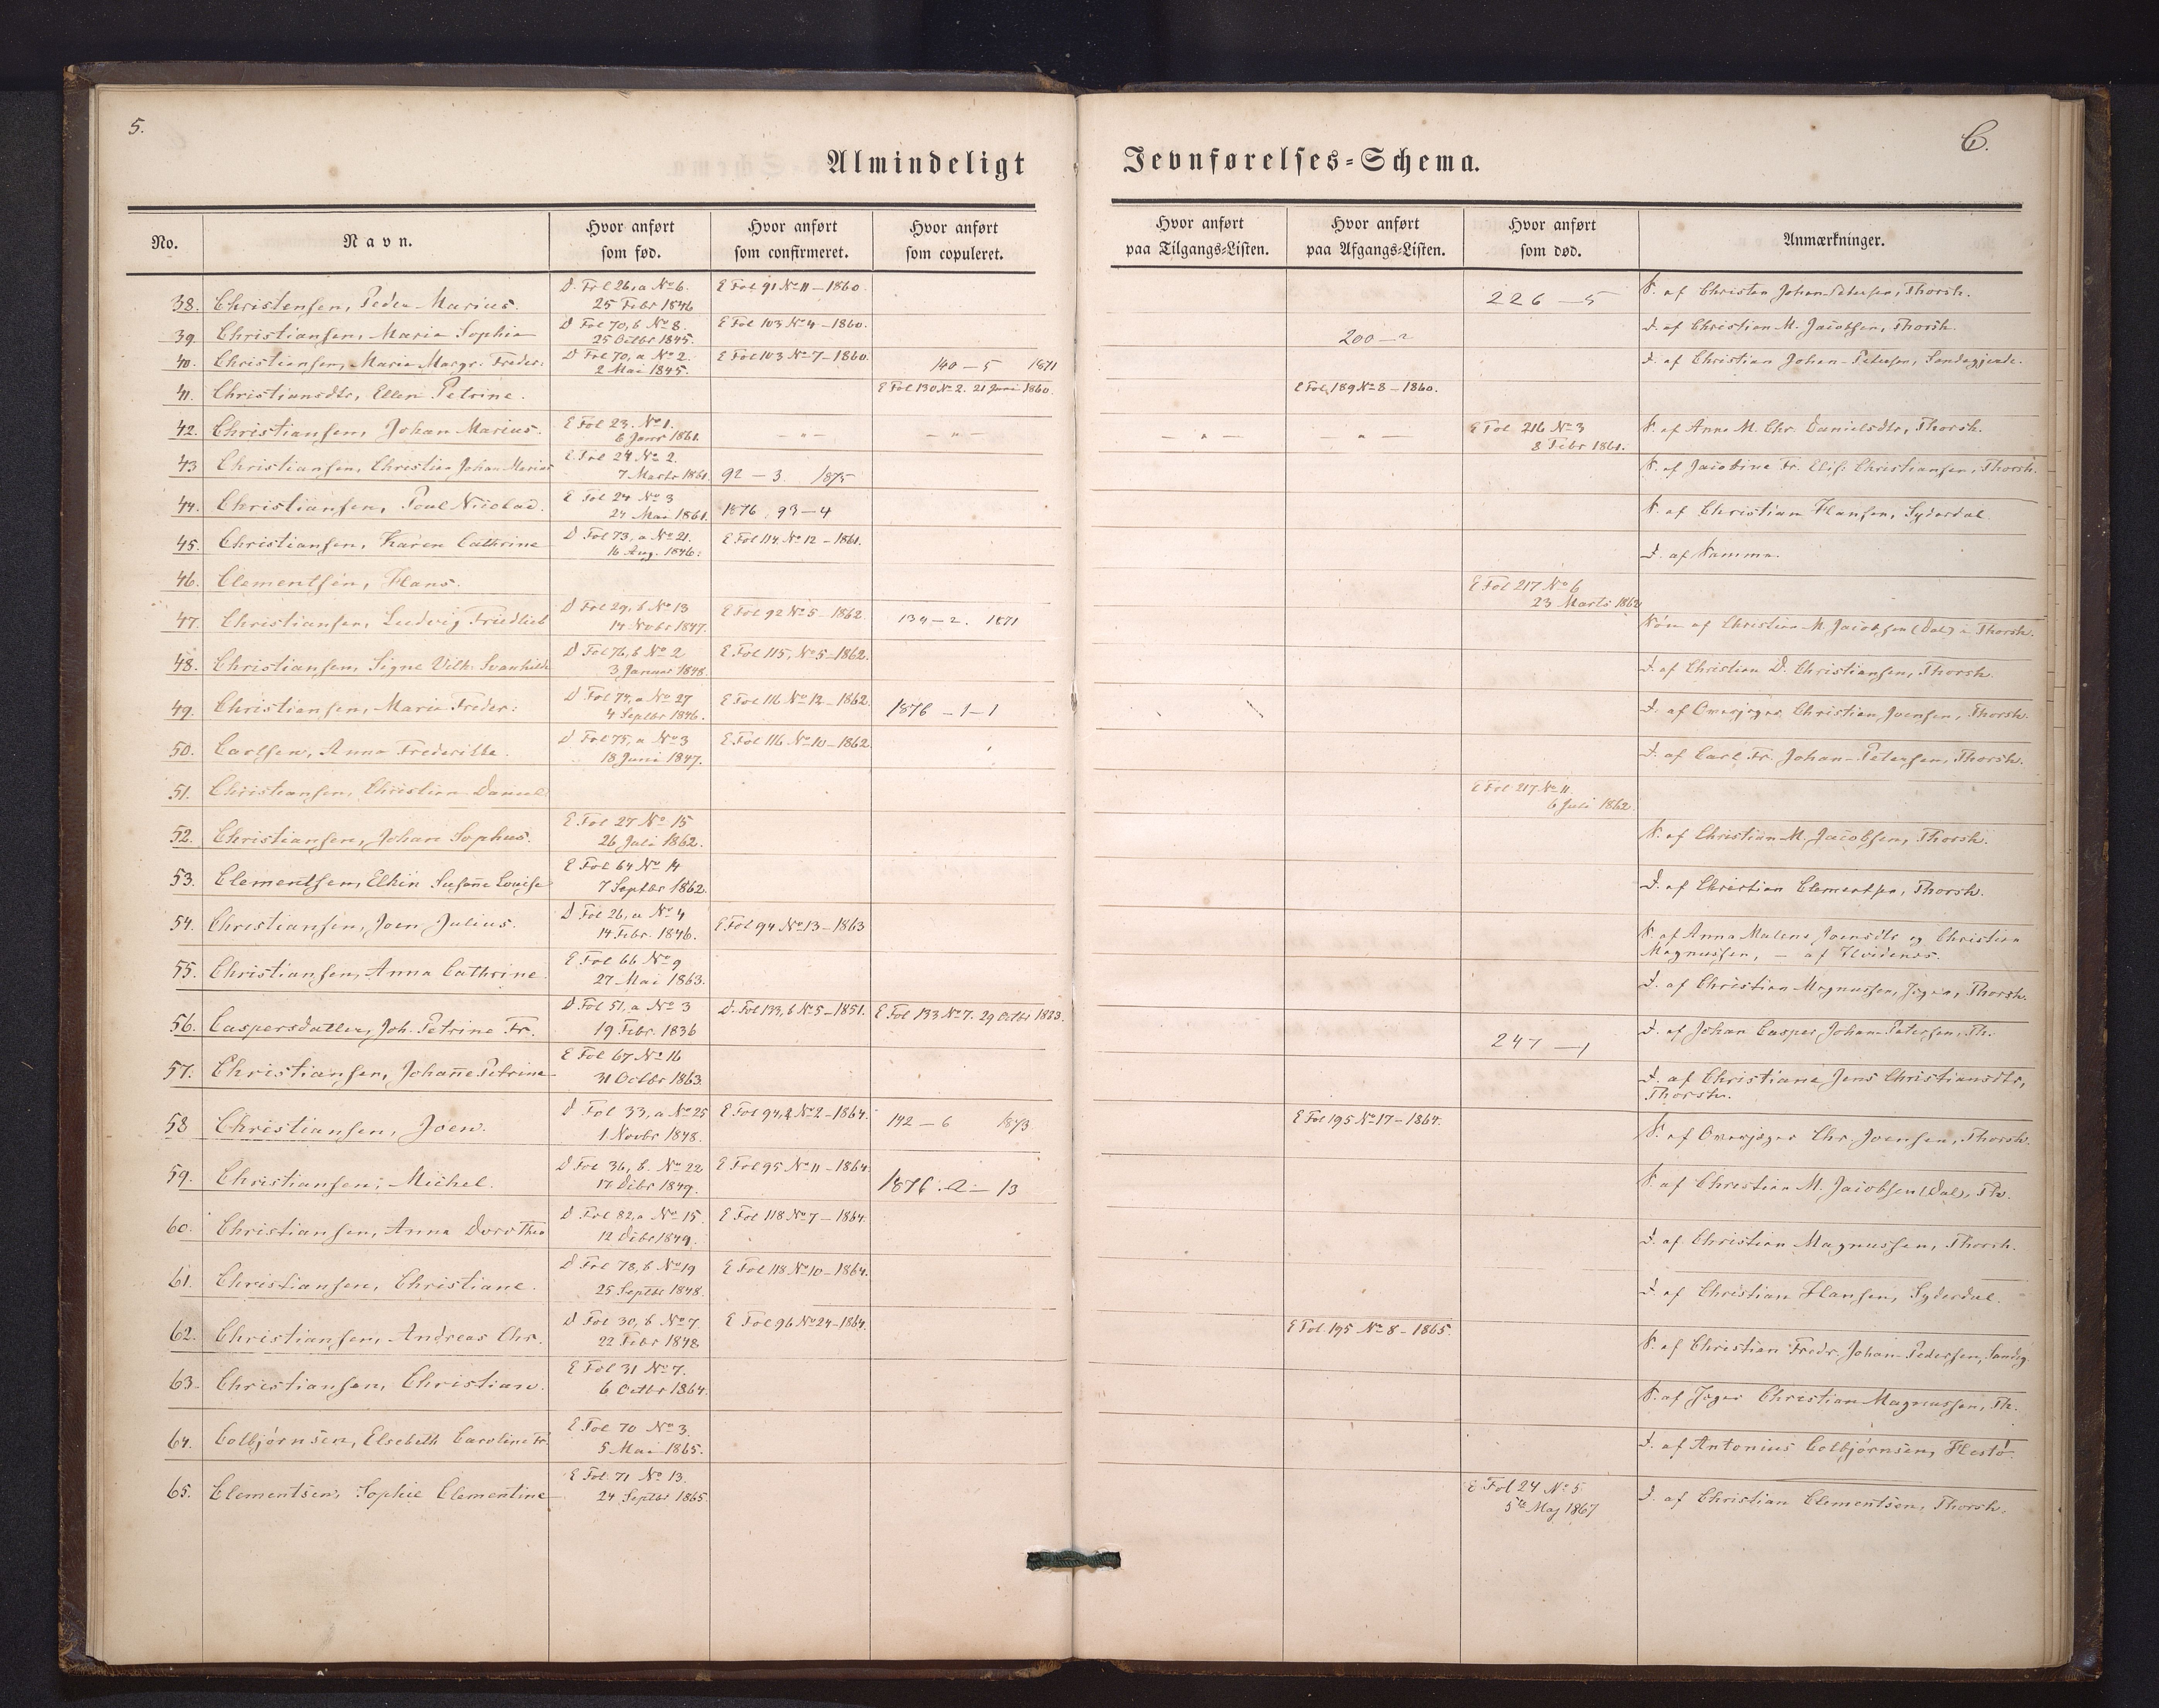 5.
C.
Almindeligt Jevnførelses=Schema.
No. Navn. Hvor anført som fød. Hvor anført som confirmeret. Hvor anført som copuleret. Hvor anført paa Tilgangs=Listen. Hvor anført paa Afgangs=Listen. Hvor anført som død. Anmærkninger.
38. Christensen, Peder Marius. D. Fol 26, a No 6. 25 Febr 1846 E Fol 91 No 11 – 1860. 226 – 5 S. af Christen Johan-Petersen, Thorsh.
39. Christiansen, Maria Sophia D Fol 70, b No 8. 25 Octbr 1845. E Fol 103 No 4 – 1860. 200 – 2 D. af Christian M. Jacobsen, Thorsh.
40. Christiansen, Maria Margr. Freder: D Fol 70, a No 2. 2 Mai 1845. E Fol 103 No 7 – 1860. 140 – 5 1871 D. af Christian Johan-Petersen, Sandegjerde.
41. Christiansdtr, Ellen Petrine. E Fol 130 No 2. 21 Juni 1860. E Fol 189 No 8 – 1860.
42. Christiansen, Johan Marius. E Fol 23. No 1. 6 Janr 1861. – " – – " – – " – – " – E Fol 216 No 3 8 Febr 1861. S. af Anna M. Chr. Danielsdtr, Thorsh.
43 Christiansen, Christian Johan Marius E Fol 24 No 2. 7 Marts 1861 92 – 3. 1875 S. af Jacobine Fr. Elis: Christiansen, Thorsh.
44. Christiansen, Poul Nicolai. E Fol 24 No 3 24 Mai 1861. 1876, 93 – 4 S. af Christian Hansen, Syderdal
45. Christiansen, Karen Cathrine D Fol 73, a No 21. 16 Aug. 1846: E Fol 114, No 12 – 1861. D. af Samma.
46. Clementsen, Hans. E Fol 217 No 6 23 Marts 1862
47. Christiansen, Ludvig Friedlieb D Fol 29, b No 13 14 Novbr 1847. E Fol 92 No 5 – 1862. – 2. 1871 Søn af Christian M. Jacobsen (Dal) i Thorsh.
48. Christiansen, Signe Vilh. Svanhilde D Fol 76, b No 2 3 Januar 1848. E Fol 115, No 5 – 1862. D. af Christian D. Christiansen, Thorsh.
49. Christiansen, Maria Freder: D Fol 74, a No 27 4 Septbr 1846. E Fol 116 No 12 – 1862. 1876 – 1 – 1 D. af Overjæger Christian Joensen, Thorsh.
50. Carlsen, Anna Frederikke. D Fol 75, a No 3 18 Juni 1847. E Fol 116 No 10 – 1862 D. af Carl Fr. Johan-Petersen, Thorsh.
51. Christiansen, Christian Daniel E Fol 217 No 11. 6 Juli 1862.
52. Christiansen, Johan Sophus. E Fol 27 No 15 26 Juli 1862. S. af Christian M. Jacobsen, Thorsh.
53. Clementsen, Elkin Susanne Louise E Fol 64 No 14 7 Septbr 1862. D. af Christian Clementsen, Thorsh.
54. Christiansen, Joen Julius. D Fol 26, a No 4 14 Febr. 1846. E Fol 94 No 13 – 1863 S. af Anna Malene Joensdtr og Christian
Magnussen, – af Hvidenæs.
55. Christiansen, Anna Cathrine. E Fol 66 No 9 27 Mai 1863. D. af Christian Magnussen, Jæger, Thorsh.
56. Caspersdatter, Joh. Petrine Fr. D Fol 51, a No 3 19 Febr. 1836 D. Fol 133, b No 5 – 1851. E Fol 133 No 7. 29 Octbr 247 – 1 D. af Johan Casper Johan-Petersen, Th.
57. Christiansen, Johanne Petrine E Fol 67 No 16 31 Octbr 1863. D. af Christiane Jens Christiansdtr,
Thorsh.
58 Christiansen, Joen. D Fol 33, a No 25 1 Novbr 1848. E Fol 94, No 2 – 1864. 142 – 6 1873. E Fol 195 No 17 – 1864. S. af Overjæger Chr. Joensen, Thorsh.
59. Christiansen, Michel. D Fol 36, b. No 22 17 Decbr 1849. E Fol 95 No 11 – 1864. 1876. 2 – 13 S. af Christian M. Jacobsen (Dal), Th.
60. Christiansen, Anna Dorothea D Fol 82, a No 15 12 Decbr 1849. E Fol 118 No 7 – 1864. D. af Christian Magnussen, Thorsh.
61. Christiansen, Christiane. D Fol 78, b No 19 25 Septbr 1848. E Fol 118 No 10 – 1864. D. af Christian Hansen, Syderdal.
62. Christiansen, Andreas Chr. D Fol 30, b No 7. 22 Febr 1848 E Fol 96 No 24 – 1864. E Fol 195 No 8 – 1865. S. af Christian Fredr. Johan-Pedersen, Sandg.
63. Christiansen, Christian. E Fol 31 No 7. 6 Octbr 1864. S. af Jæger Christian Magnussen, Th.
64. Colbjørnsen, Elsebeth Caroline Fr. E Fol 70 No 3. 5 Mai 1865. D. af Antonius Colbjørnsen, Hestø
65. Clementsen, Sophie Clementine E Fol. 71 No 13. 24 Septbr 1865. E Fol 24 No 5 5te Maj 1867 D. af Christian Clementsen, Thorsh.